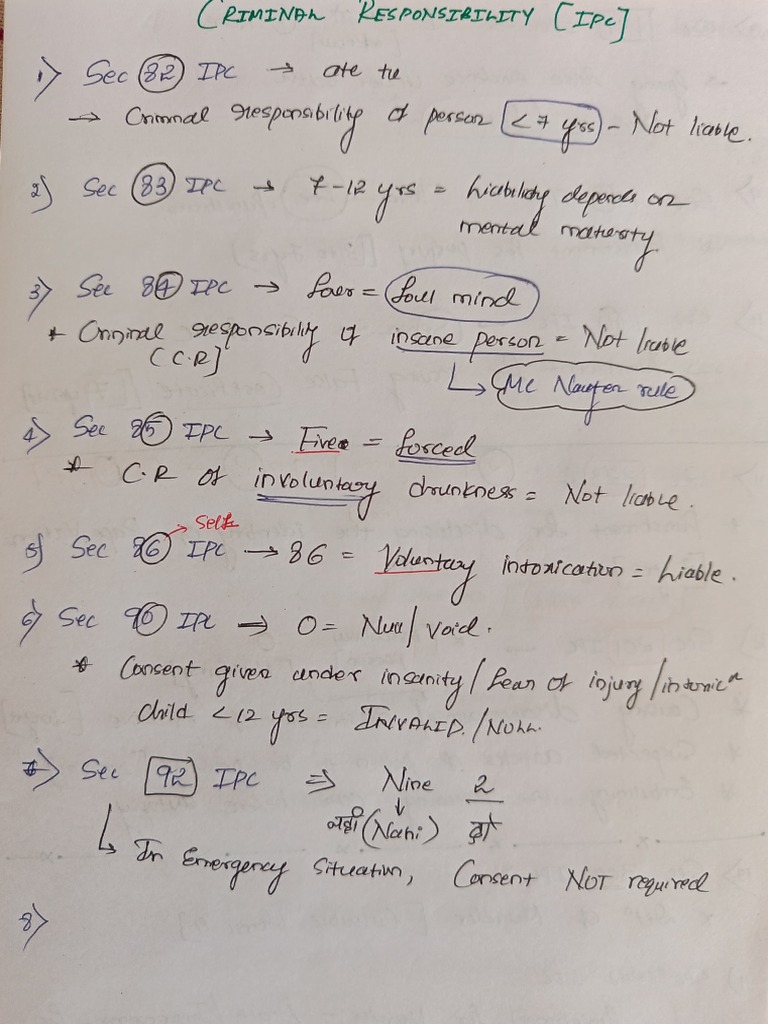 CRIMINAL RESPONSIBILITY [IPC]
1) Sec 82 IPC → ate tu
→ Criminal responsibility of person < 7 yrs - Not liable.
2) Sec 83 IPC → 7-12 yrs = Liability depends on
mental maturity
3) Sec 84 IPC → foer = foul mind
* Criminal responsibility of insane person = Not liable
(C.R]
↳ Mc Naugten rule
4) Sec 85 IPC → Five = forced
* C.R of involuntary drunkness = Not liable.
→ Self
5) Sec 86 IPC → 86 = Voluntary intoxication = Liable.
6) Sec 90 IPC → 0 = Null/Void.
* Consent given under insanity/fear of injury/intoxicⁿ
Child <12 yrs = INVALID./NULL.
7) Sec 92 IPC ⇒ Nine 2
नही (Nahi) दो
↳ In Emergency Situation, Consent NOT required
8)